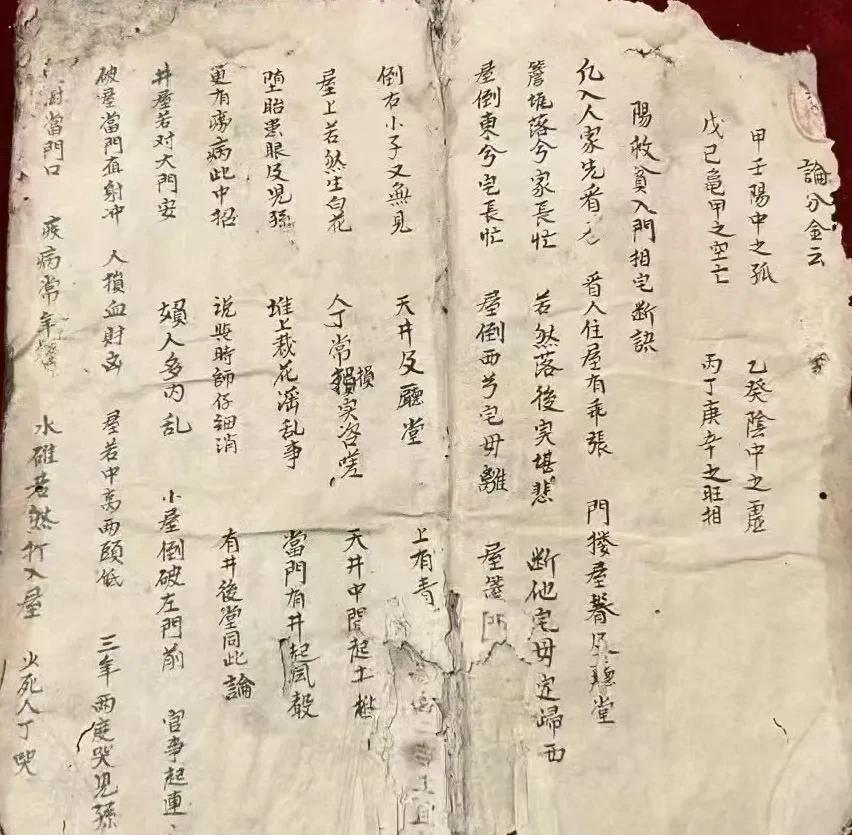 論分金云
甲壬陽中之孤 乙癸陰中之虛
戊己龜甲之空亡 丙丁庚辛之旺相
陽救貧入門相宅断訣
凡入人家先看 看人住屋有乖張 門楼屋脊及廳堂
簷堆落兮家長忙 若然落後実堪悲 断他宅母定歸西
屋倒東兮宅長忙 屋倒西兮宅母離 屋
倒右小子又無見 天井及廳堂 上有青
屋上若然生白花 人丁常損実咨嗟 天井中間起土堆
堕胎患眼及児孫 堆上栽花淫乱事 當門有井起風声
更有痨病此中招 説與時師仔細消 有井後堂同此論
井屋若对大門安 婦人多内乱 小屋倒破左門前 官事起連
破屋當門直射冲 人損血財凶 屋若中高両頭低 三年両度哭児孫
當門口 疾病常年 水碓若然打入屋 少死人丁哭